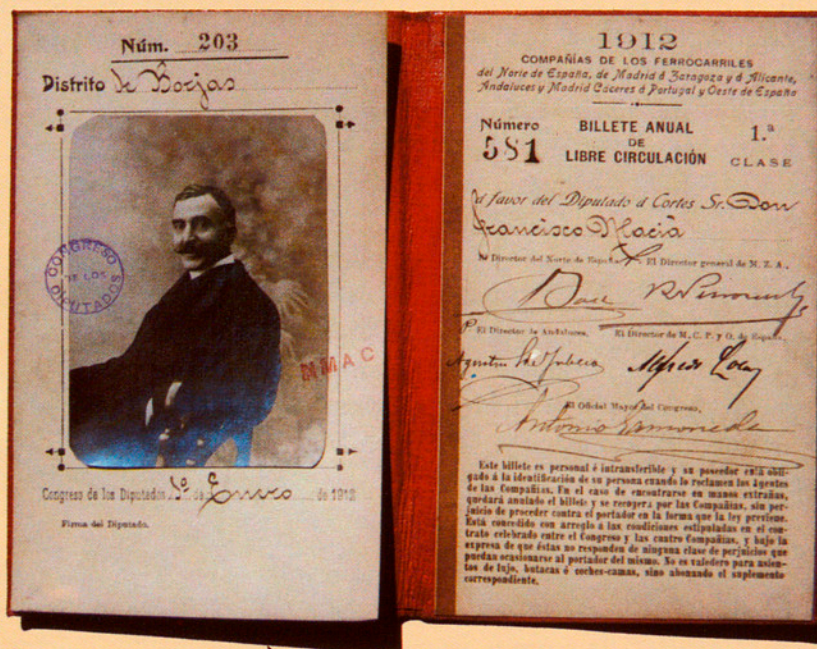 Núm. 203
Distrito de Borjas
CONGRESO DE LOS DIPUTADOS
MMAC
Congreso de los Diputados 1º de Enero de 1912
Firma del Diputado.
1912
COMPAÑÍAS DE LOS FERROCARRILES
del Norte de España, de Madrid á Zaragoza y á Alicante,
Andaluces y Madrid Cáceres á Portugal y Oeste de España
Número
581
BILLETE ANUAL
DE
LIBRE CIRCULACIÓN
1.ª
CLASE
á favor del Diputado á Cortes Sr. Don
Francisco Macià
El Director del Norte de España, El Director general de M. Z. A.,
P. El Director de Andaluces, El Director de M. C. P. y O. de España,
Alfredo
El Oficial Mayor del Congreso,
Antonio Gamoneda
Este billete es personal é intransferible y su poseedor está obli-
gado á la identificación de su persona cuando lo reclamen los Agentes
de las Compañías. En el caso de encontrarse en manos extrañas,
quedará anulado el billete y se recogerá por las Compañías, sin per-
juicio de proceder contra el portador en la forma que la ley previene.
Está concedido con arreglo á las condiciones estipuladas en el con-
trato celebrado entre el Congreso y las cuatro Compañías, y bajo la
expresa de que éstas no responden de ninguna clase de perjuicios que
puedan ocasionarse al portador del mismo. No es valedero para asien-
tos de lujo, butacas ó coches-camas, sino abonando el suplemento
correspondiente.